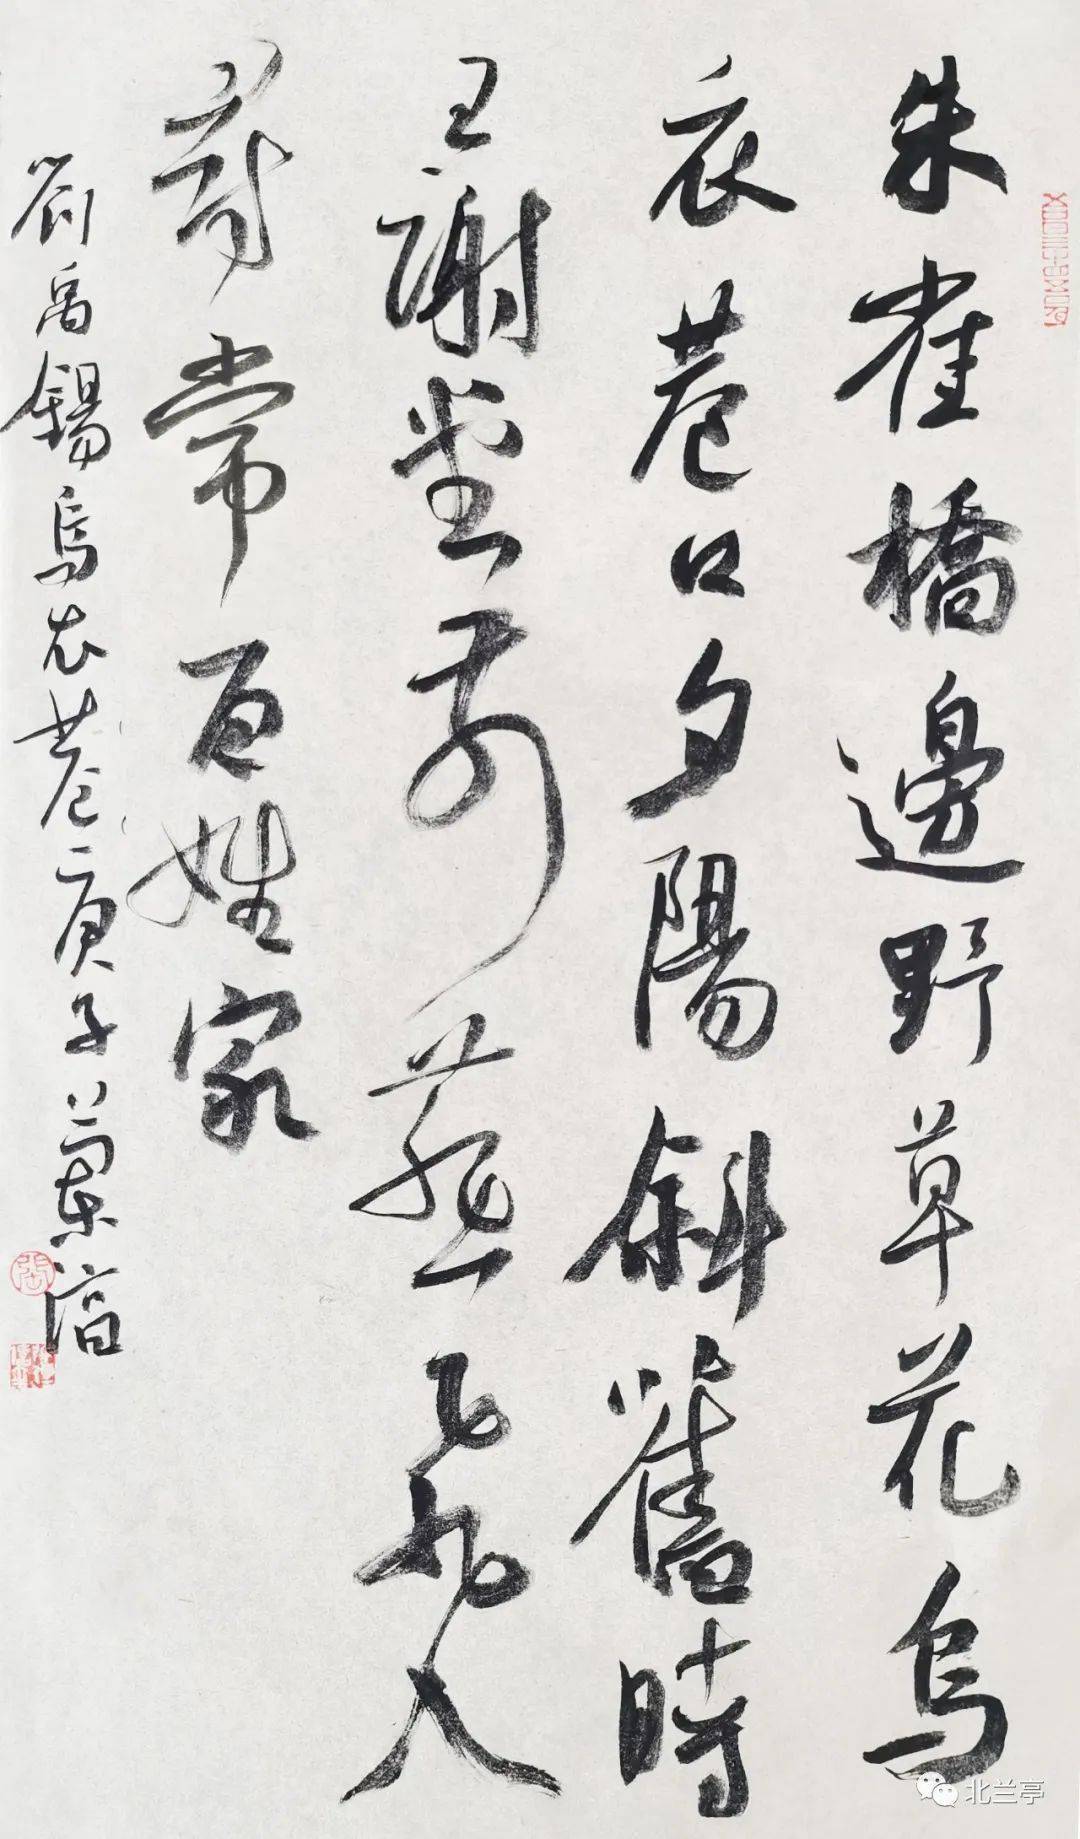 朱雀橋邊野草花烏
衣巷口夕陽斜舊時
王謝堂前燕飛入
尋常百姓家
劉禹錫烏衣巷庚子蘭
北兰亭